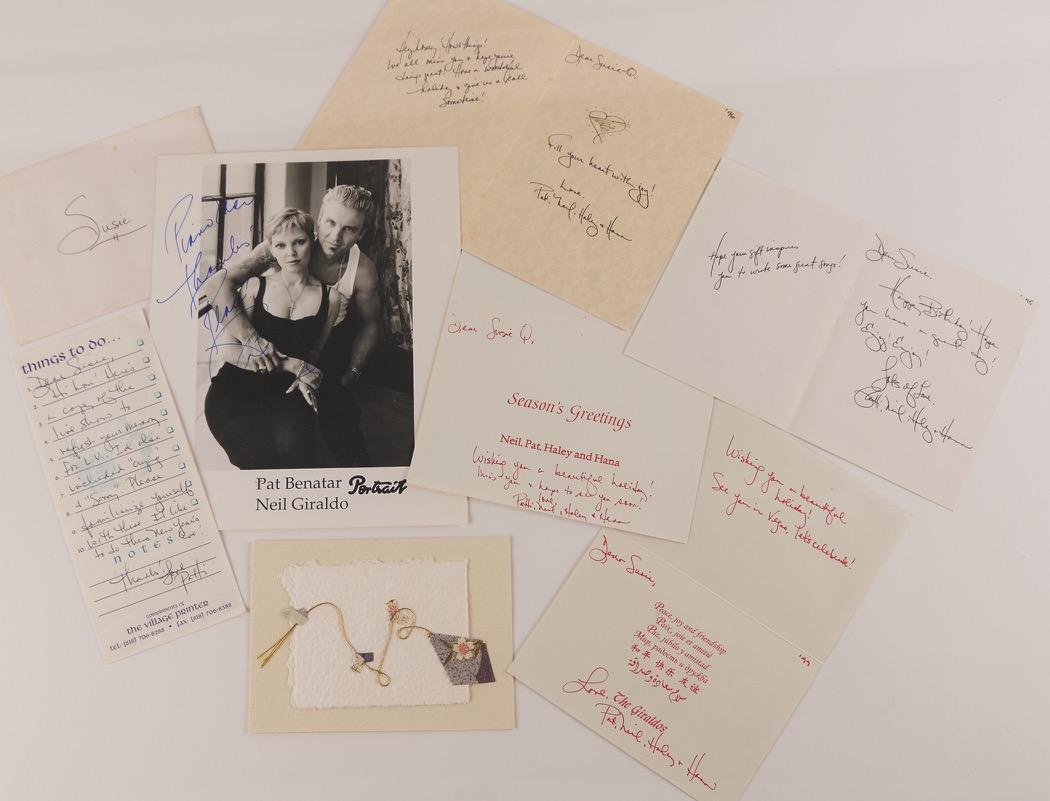 Susie
things to do...
1. Dear Susie,
2. Hi hon! Here's
3. a copy of the
4. live show to
5. refresh your memory
6. for L.V. I'd also
7. included "crying"
8. & "Sorry" Please
9. familiarize yourself
10. with these I'd like
to do them New Year's
Eve!
notes
Thanks! Love
Patti
compliments of
the VILLAGE PRINTER
TEL: (818) 706-8288 • FAX: (818) 706-8388
thanks
Pat Benatar
Neil Giraldo
Portrait
How's things!
We all miss you & hope you're
doing great! Have a wonderful
holiday & give us a call
Sometime!
Dear Susie Q.
'96
Fill your heart with joy!
Love,
Pat, Neil, Haley & Hana
Hope your gift inspires
you to write some great songs!
Dear Susie,
'98
Happy Birthday! Hope
you have a great day!
Enjoy! Enjoy!
Lots of Love,
Patti, Neil, Haley & Hanna
Dear Susie Q,
Season's Greetings
Neil, Pat, Haley and Hana
Wishing you a beautiful holiday!
Miss you & hope to see you soon!
Love,
Patti, Neil, Haley & Hana
Wishing you a beautiful
holiday!
See you in Vegas, let's celebrate!
Dear Susie,
'99
Peace, joy and friendship
Paix, joie et amitié
Paz, júbilo y amistad
Мир, радость и дружба
和平 快乐 友谊
Love, The Giraldos
Pat, Neil, Haley & Hana